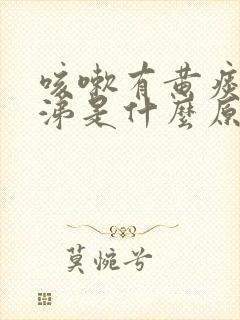 咳嗽有黄痰
涕是什麼原
莫惋兮